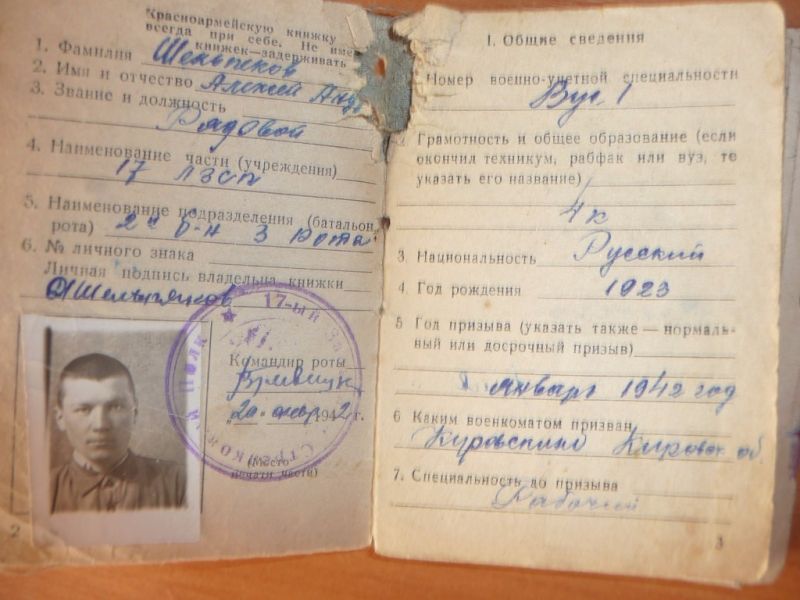 Красноармейскую книжку
всегда при себе. Не име
книжек—задерживать
1. Фамилия
2. Имя и отчество Алексей Андр
3. Звание и должность
Рядовой
4. Наименование части (учреждения)
17 ЛЗСП
5. Наименование подразделения (батальон,
рота) 2й б-н 3 рота
6. № личного знака
Личная подпись владельца книжки
17-ый
Стрелковый Полк
Командир роты
"20" 1942 г.
(Место
печати части)
2
I. Общие сведения
Номер военно-учетной специальности
Вус 1
2 Грамотность и общее образование (если
окончил техникум, рабфак или вуз, то
указать его название)
4 к
3. Национальность Русский
4. Год рождения 1923
5 Год призыва (указать также — нормаль-
ный или досрочный призыв)
январь 1942 год
6 Каким военкоматом призван
Кировск об.
7. Специальность до призыва
Рабочий
3